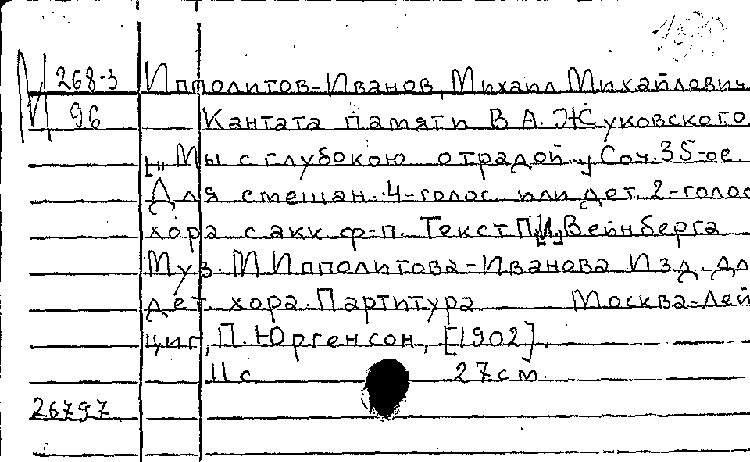 М 268-3 Ипполитов-Иванов, Михаил Михайлович.
И 96 Кантата памяти В.А. Жуковского
["Мы с глубокою отрадой"] Соч. 35-ое.
Для смешан. 4-голос. или дет. 2-голос
хора с акк. ф-п. Текст П.[И.] Вейнберга
Муз. М. Ипполитова-Иванова Изд. дл
дет. хора. Партитура Москва-Лей
циг, П. Юргенсон, [1902].
11 с 27 см
26797